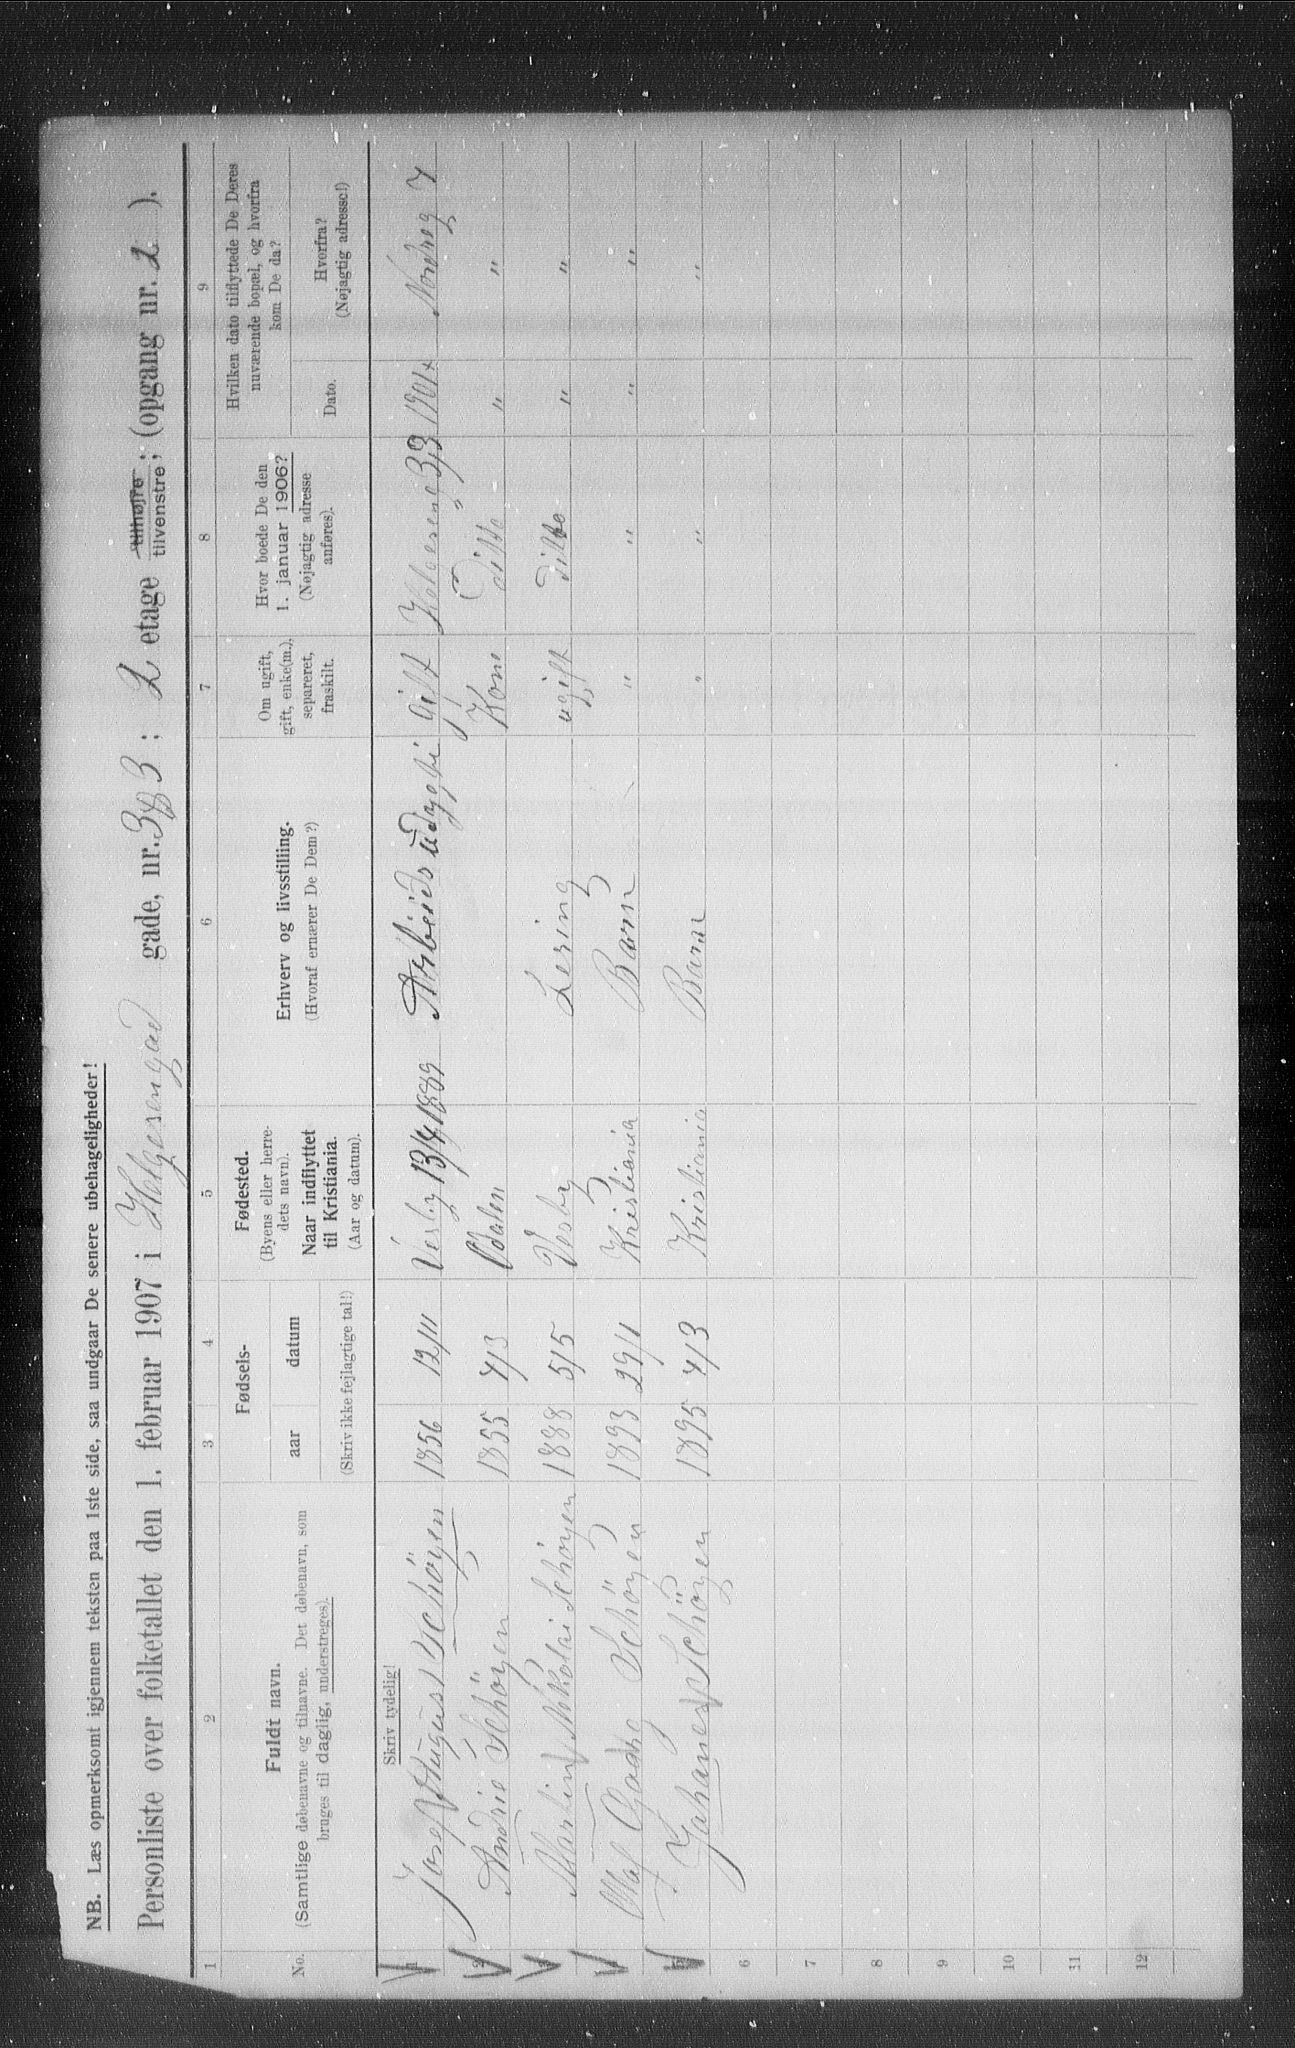 NB. Læs opmerksomt igjennem teksten paa 1ste side, saa undgaar De senere ubehageligheder!
Personliste over folketallet den 1. februar 1907 i Helgesengad gade, nr. 33; 2 etage tilhøjre tilvenstre; (opgang nr. 2).
1 2 3 4 5 6 7 8 9
No.
Fuldt navn.
(Samtlige døbenavne og tilnavne. Det døbenavn, som
bruges til daglig, understreges).
Fødsels-
aar datum
(Skriv ikke fejlagtige tal!)
Fødested.
(Byens eller herre-
dets navn).
Naar indflyttet
til Kristiania.
(Aar og datum).
Erhverv og livsstilling.
(Hvoraf ernærer De Dem?)
Om ugift,
gift, enke(m.),
separeret,
fraskilt.
Hvor boede De den
1. januar 1906?
(Nøjagtig adresse
anføres).
Hvilken dato tilflyttede De Deres
nuværende bopæl, og hvorfra
kom De da?
Dato.
Hvorfra?
(Nøjagtig adresse!)
Skriv tydelig!
1 Josef August Schöyen 1856 12/11 Vesby 13/4 1889 gift 33 1901 7
2 Schöyen 1855 4/3 Odalen Kone Ditto " "
3 Martin Nikolai Schöyen 1888 5/5 Vesby Lering ugift ditto " "
4 Olaf Schöyen 1893 29/1 Kristiania Barn " " " "
5 Johanes Schöyen 1895 4/3 Kristiania Barn " " "
6
7
8
9
10
11
12